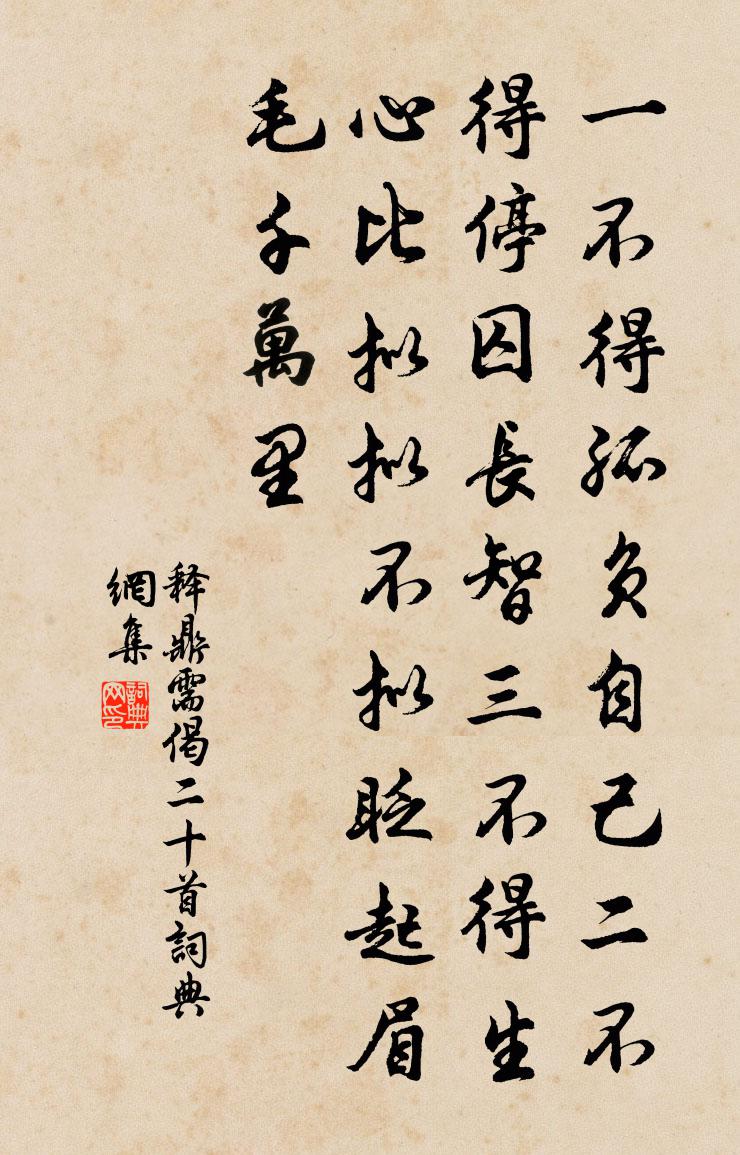 一不得孤负自己二不
得停囚長智三不得生
心比拟拟不拟眨起眉
毛千萬里
释鼎需偈二十首詞典
網集
詞典
网印